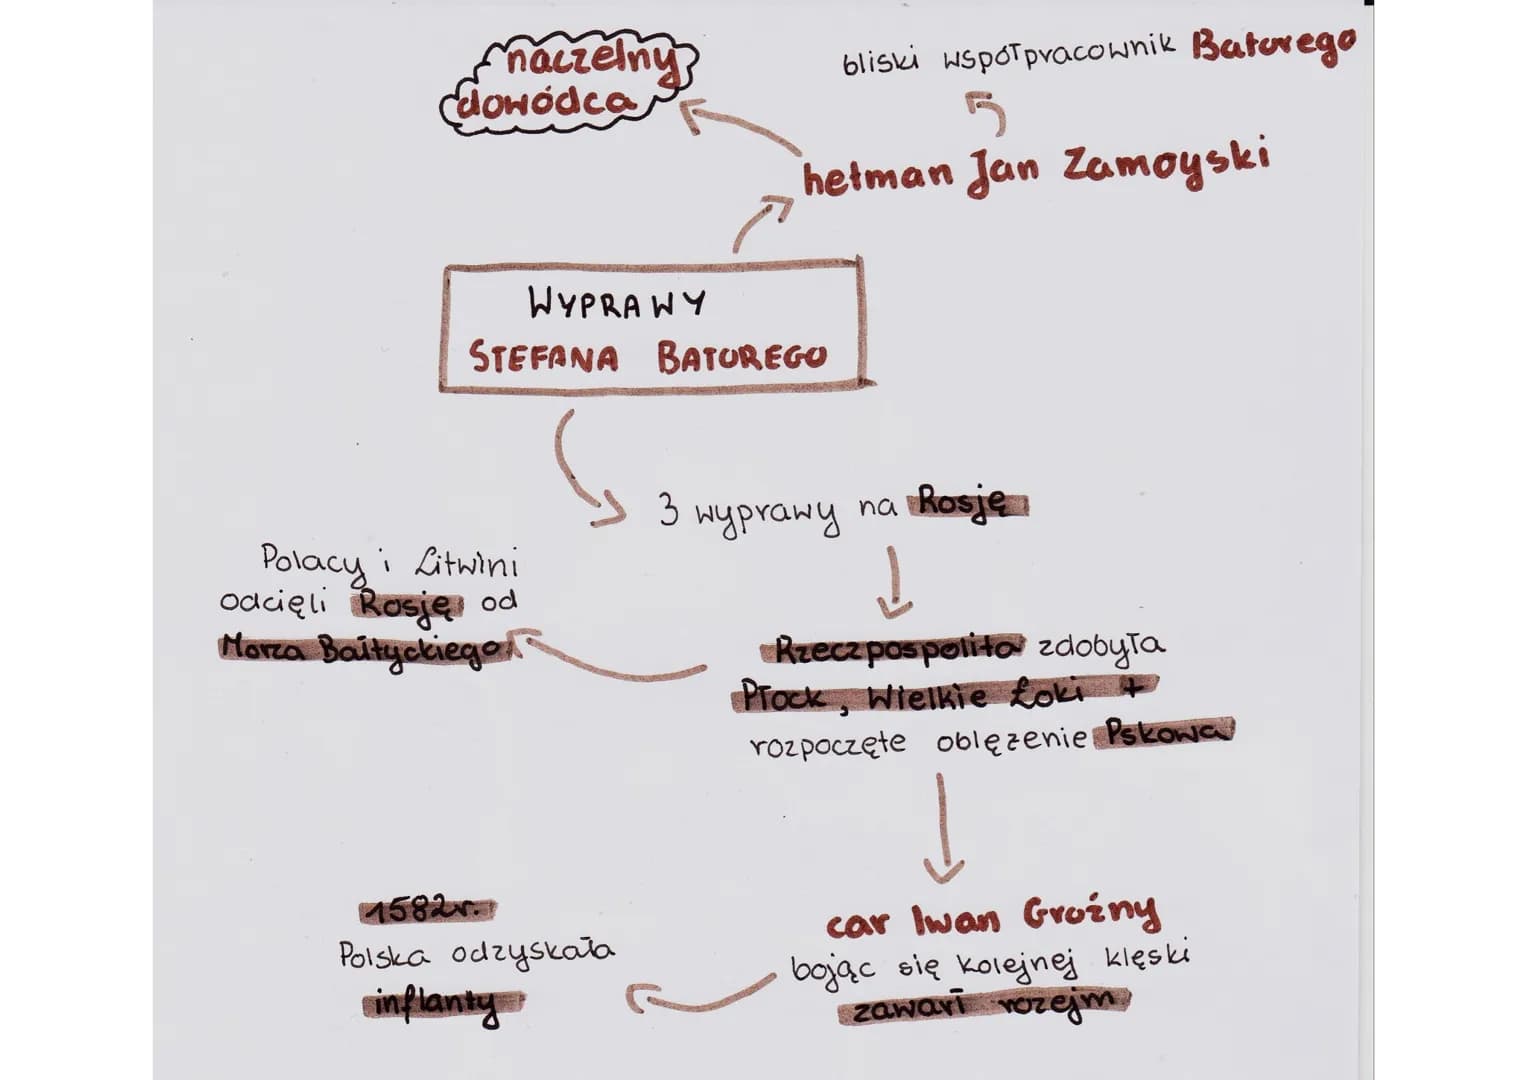 naczelny
dowódca
bliski współpracownik Batorego
hetman Jan Zamoyski
WYPRAWY
STEFANA BATOREGO
3 wyprawy na Rosję
Polacy i Litwini
odcięli Rosję od
Morza Bałtyckiego
Rzeczpospolita zdobyła
Płock, Wielkie Łoki +
rozpoczęte oblężenie Pskowa
car Iwan Groźny
bojąc się kolejnej klęski
zawarł rozejm
1582r.
Polska odzyskała
inflanty